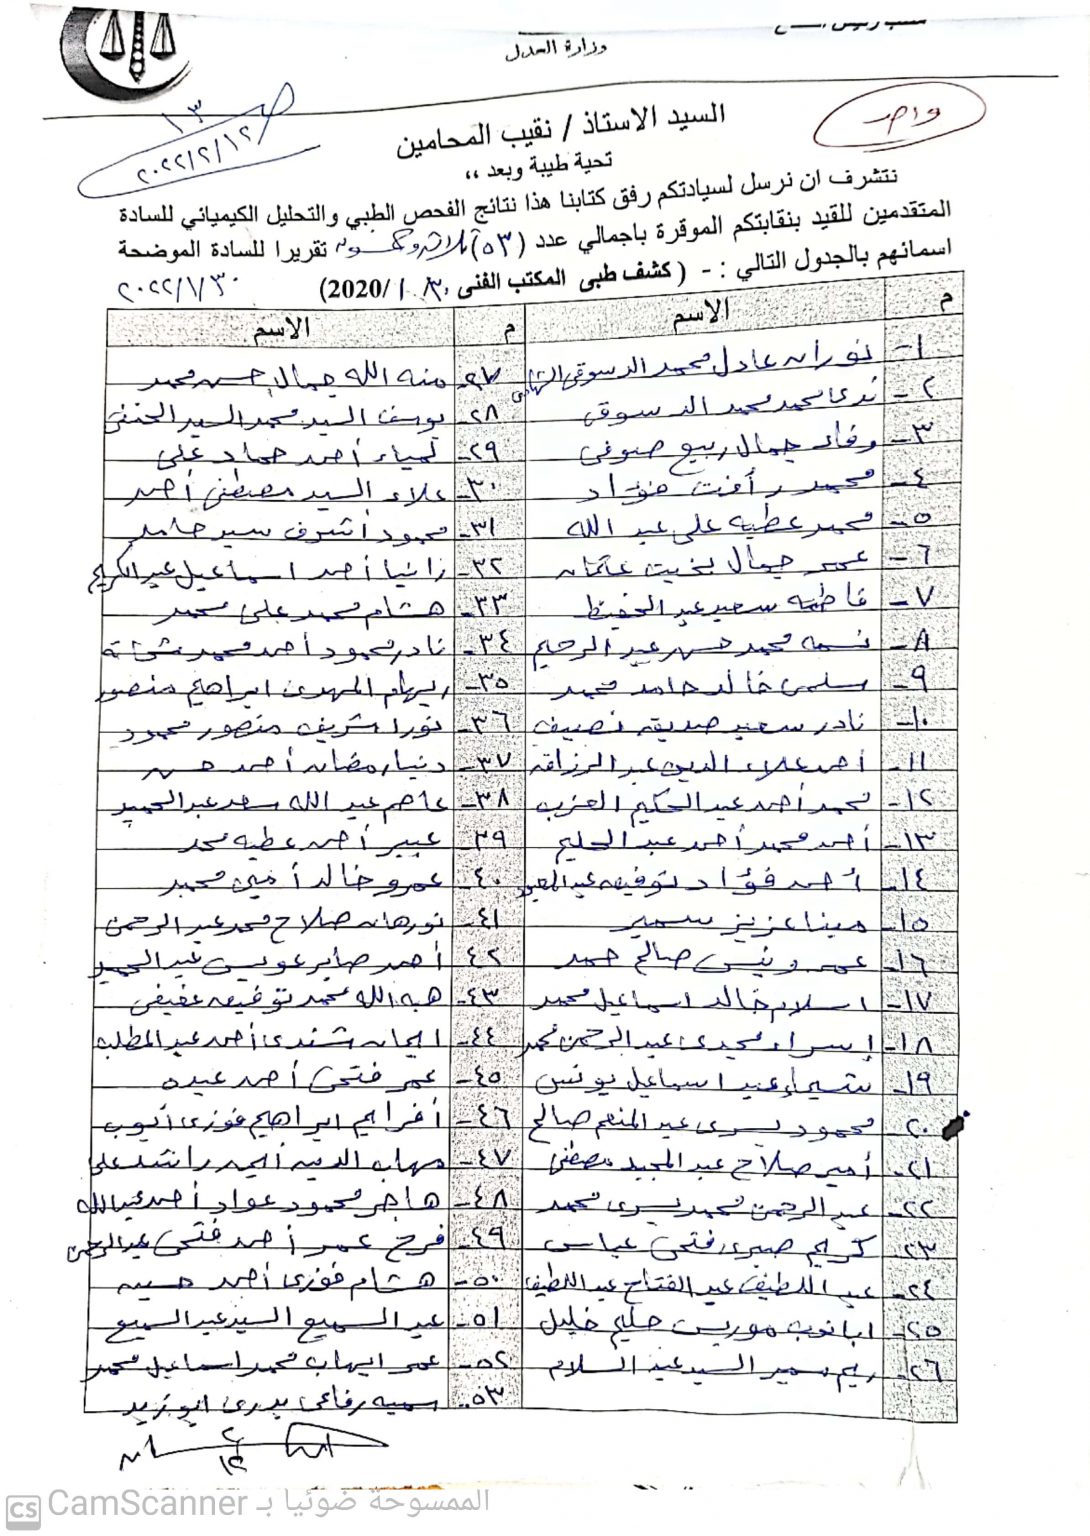 مكتب رئيس
وزارة العدل
واحد
١٣
٢٠٢٢/٢/١٢
السيد الاستاذ / نقيب المحامين
تحية طيبة وبعد ،،
نتشرف ان نرسل لسيادتكم رفق كتابنا هذا نتائج الفحص الطبي والتحليل الكيميائي للسادة
المتقدمين للقيد بنقابتكم الموقرة باجمالي عدد (٥٣) ثلاثة وخمسون تقريرا للسادة الموضحة
اسمائهم بالجدول التالي :- ( كشف طبى المكتب الفنى ٣٠/ ١ /2020) ٢٠٢٢/١/٣٠
م الاسم م الاسم
١- نوران عادل محمد الدسوقى ٢٧- منه الله جمال حسن محمد
٢- ندى محمد محمد الدسوقى ٢٨- يوسف السيد محمد السيد الحنفى
٣- وفاء جمال ربيع صوفى ٢٩- لمياء أحمد حماد على
٤- محمد رأفت فؤاد ٣٠- علاء السيد مصطفى أحمد
٥- محمد عطيه على عبد الله ٣١- محمود أشرف سيد حامد
٦- عمر جمال بخيت عثمان ٣٢- رانيا أحمد اسماعيل عبد الكريم
٧- فاطمه سعيد عبد الحفيظ ٣٣- هشام محمد على محمد
٨- نسمه محمد حسن عبد الرحيم ٣٤- نادر محمود أحمد محمد
٩- سلمى خالد حامد محمد ٣٥- ريهام المهدى ابراهيم منصور
١٠- نادر سعيد صديق نصيف ٣٦- نورا شريف منصور محمود
١١- أحمد علاء الدين عبد الرزاق ٣٧- دنيا رمضان أحمد حسن
١٢- محمد أحمد عبد الحكيم العزب ٣٨- عاصم عبد الله سعد عبد الحميد
١٣- أحمد محمد أحمد عبد الحليم ٣٩- عبير أحمد عطيه محمد
١٤- أحمد فؤاد توفيق ٤٠- عمرو خالد أمين محمد
١٥- مينا عزيز سمير ٤١- نورهان صلاح محمد عبد الرحمن
١٦- عمر ونيس صالح حمد ٤٢- أحمد صابر عويس عبد الحميد
١٧- اسلام خالد اسماعيل محمد ٤٣- هبه الله محمد توفيق عفيفى
١٨- إسراء مجدى عبد الرحمن محمد ٤٤- ايمان شندى أحمد عبد المطلب
١٩- شيماء عيد اسماعيل يونس ٤٥- عمر فتحى أحمد عبده
٢٠- محمود يسرى عبد المنعم صالح ٤٦- أفرايم ابراهيم فوزى أيوب
٢١- أمير صلاح عبد المجيد مصطفى ٤٧- مهاب الدين أيمن راشد على
٢٢- عبد الرحمن محمد يسرى محمد ٤٨- هاجر محمود عواد أحمد عبدالله
٢٣- كريم صبرى فتحى عباس ٤٩- فرح عمر أحمد فتحى عبد الرحمن
٢٤- عبد اللطيف عبد الفتاح عبد اللطيف ٥٠- هشام فوزى أحمد حسين
٢٥- ابانوب موريس حليم خليل ٥١- عبد السميع السيد عبد السميع
٢٦- ريم سمير السيد عبد السلام ٥٢- عمر ايهاب محمد اسماعيل محمد
٥٣- سميه رفاعى بدرى ابو زيد
CS CamScanner الممسوحة ضوئيا بـ